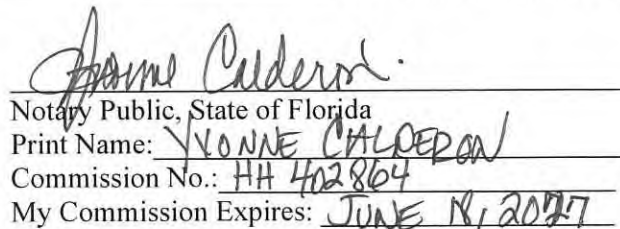 Yvonne Calderon
Notary Public, State of Florida
Print Name: YVONNE CALDERON
Commission No.: HH 402864
My Commission Expires: JUNE 18, 2027